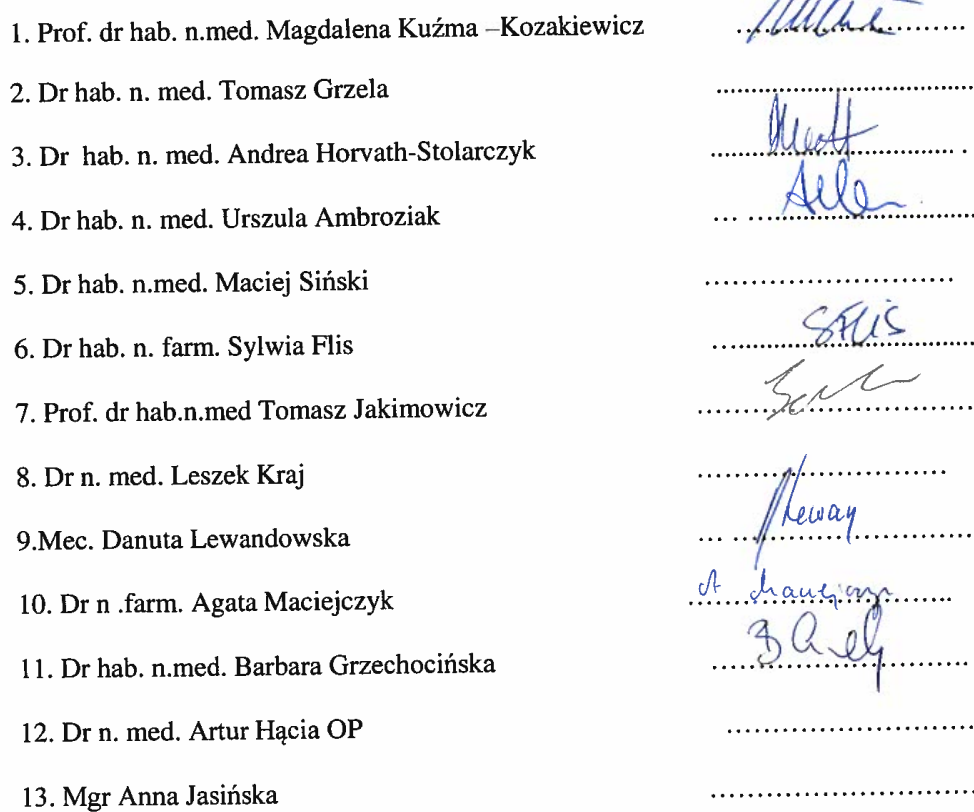 1. Prof. dr hab. n.med. Magdalena Kuźma –Kozakiewicz
2. Dr hab. n. med. Tomasz Grzela
3. Dr hab. n. med. Andrea Horvath-Stolarczyk
4. Dr hab. n. med. Urszula Ambroziak
5. Dr hab. n.med. Maciej Siński
6. Dr hab. n. farm. Sylwia Flis SFlis
7. Prof. dr hab.n.med Tomasz Jakimowicz
8. Dr n. med. Leszek Kraj
9.Mec. Danuta Lewandowska
10. Dr n .farm. Agata Maciejczyk
11. Dr hab. n.med. Barbara Grzechocińska
12. Dr n. med. Artur Hącia OP
13. Mgr Anna Jasińska